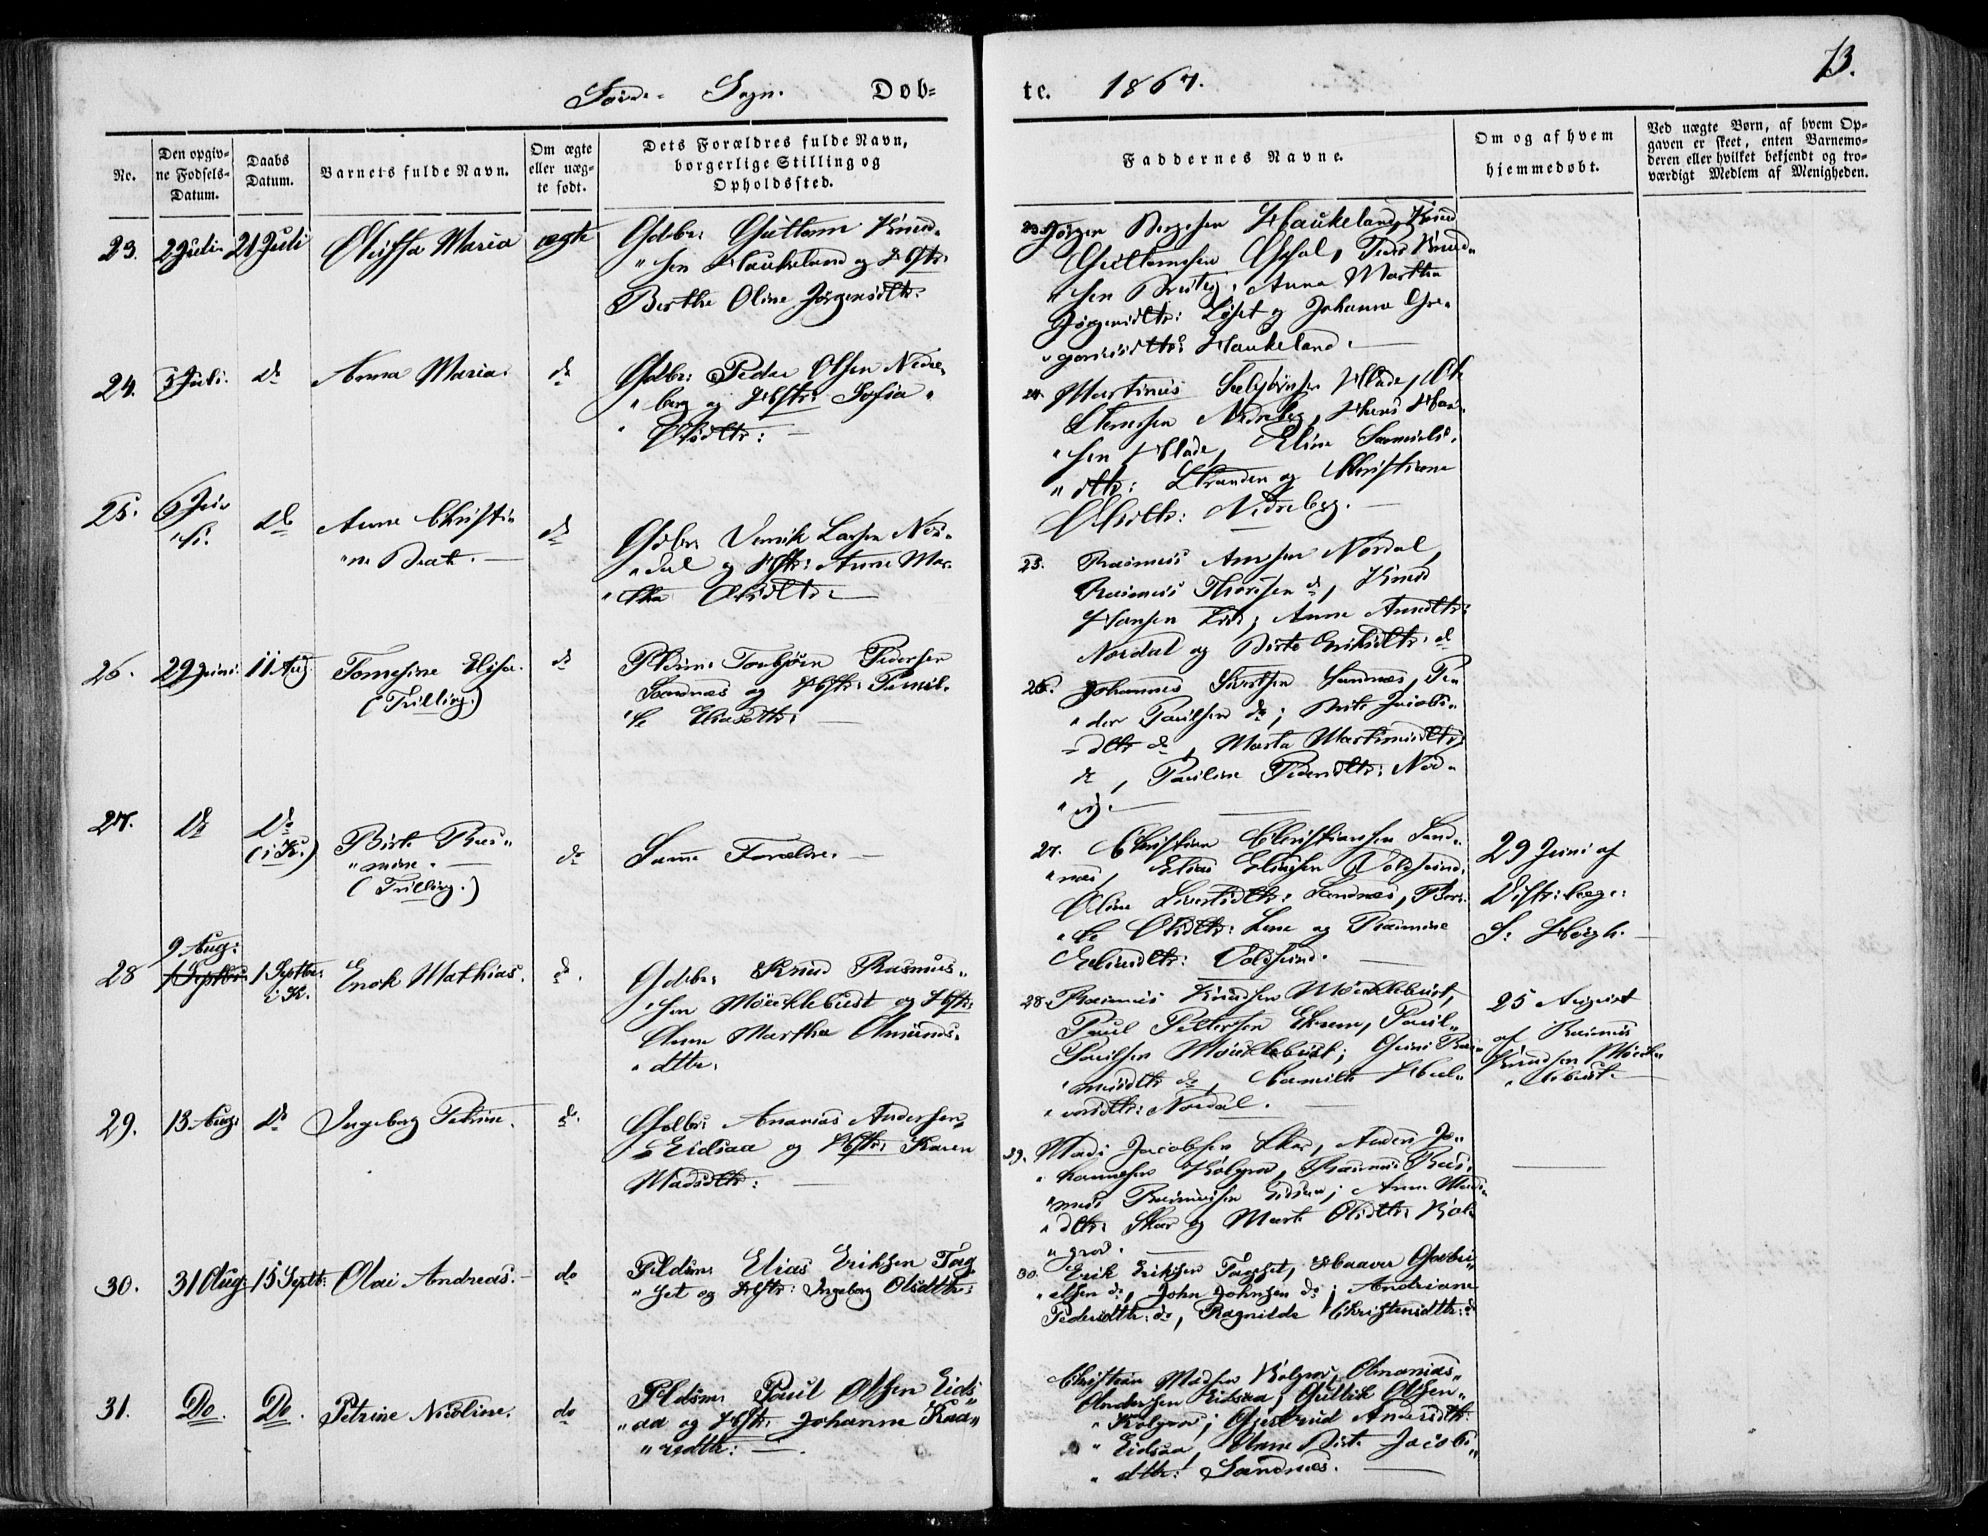 Sørde Sogn. Døb=
te. 1867. 13.
No.
Den opgiv=
ne Fødsels=
Datum.
Daabs
Datum.
Barnets fulde Navn.
Om ægte
eller uæg=
te født.
Dets Forældres fulde Navn,
borgerlige Stilling og
Opholdssted.
Faddernes Navne.
Om og af hvem
hjemmedøbt.
Ved uægte Børn, af hvem Op=
gaven er skeet, enten Barnemo=
deren eller hvilket bekjendt og tro=
værdigt Medlem af Menigheden.
23. 2 Juli 21 Juli Oluffa Maria ægte
Gdbr: Guttorm Knud„
„sen Haukeland og Hstr:
Berthe Oline Jørgensdtr:
23. Jørgen Børgesen Haukeland, Knud
Guttormsen Oksal, Peder Knud„
„sen Brusteg, Anna Martha
Jørgensdtr: Løset og Johanna Gre„
„goriusdtr: Haukeland.
24. 3 Juli. do Anna Maria. do
Gdbr: Peder Olsen Nedre„
„berg og Hstr: Sofia
Olsdtr:
24. Martinus Hlade, Ole
Stensen Nedreberg, Hans Han„
„sen Hlade, Eline Samuels„
„dtr: Stranden og Christiane
Olsdtr: Nedreberg.
25. 6 Ju„
„li. do Anne Christi„
„ne Beate. do
Gdbr: Henrik Larsen Nor„
„dal og Hstr: Anne Mar„
„tha Olsdtr:
25. Rasmus Arnesen Nordal,
Rasmus Thoresen do, Knud
Hansen Lid; Anne Arnedtr:
Nordal og Birte Eriksdtr: do
26. 29 Juni 11 Aug. Tomesine Elisa. do
(Trilling.)
Pldsm: Torbjørn Pedersen
Sandnæs og Hstr: Pernil„
„le Eliasdtr:
26. Johannes Sivertsen Sandnæs, Pe„
„der Paulsen do; Birte Jacobs„
„dtr do, Marta Martinusdtr:
do, Pauline Pedersdtr: Nord„
„vig.
27. Do Do
(i K.) Birte Ras„
„mine.
(Trilling.) do
Samme Forældre.
27. Christian Christiansen Sand„
„næs, Elias Eliassen Voldsund,
Oline Sivertsdtr: Sandnæs, Ber„
„te Olsdtr: Lene og Rasmine
Eliasdtr: Voldsund.
29 Juni af
Distr:læge:
S: Høigh.
9 Aug:
28 1 Septbr: 1 Septbr:
i K. Enok Mathias. do.
Gdbr: Knud Rasmus„
„sen Møcklebust og Hstr:
Anne Martha Amunds„
„dttr.
28. Rasmus Knudsen Møcklebust,
Paul Pettersen Ekrem, Paul
Paulsen Møcklebust; Guni Ras„
„musdtr do, Pernille Hal„
„vorsdtr: Nordal.
25 August
af Rasmus
Knudsen Møck„
„lebust.
29. 13 Aug: do Ingeborg Petrine. do.
Gdbr: Ananias Andersen
Eidsaa og Hstr: Karen
Madsdtr:
29. Mads Jacobsen Skar, Anders Jo„
„hannesen Kolgrov, Rasmus Ras„
„mus Rasmussen Eidsaa; Anne Mads„
„dtr: Skar og Marte Olsdtr: Kol„
„grov.
30. 31 Aug: 15 Septb: Olai Andreas. do
Pldsm: Elias Eriksen Tag„
„set og Hstr: Ingeborg Olsdttr:
30. Erik Eriksen Tagset, Haaver Gabri„
„elsen do, John Johnsen do; Andriane
Pedersdttr: do, Ragnilde Christensdttr: do
31. Do. Do. Petrine Nicoline. do
Pldsm: Poul Olsen Eids„
„aa og Hstr: Johanne Knu„
„dsdttr:
Christian Madsen Kolgrov, Ananias
Andersen Eidsaa, Guttik Olsen
Kolgrov; Gjertrud Andersdttr:
Eidsaa, Anne Birte Jacobs„
„dttr: Sandnæs.